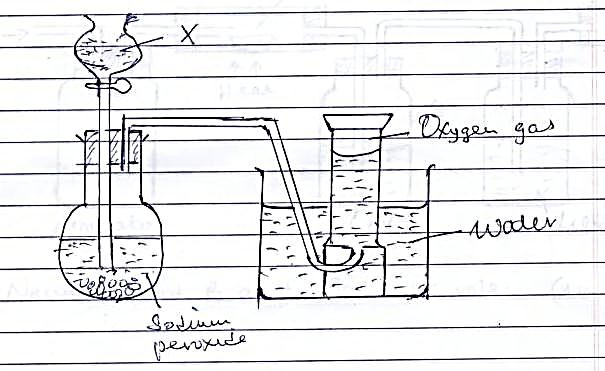 X
Oxygen gas
Water
Sodium
peroxide